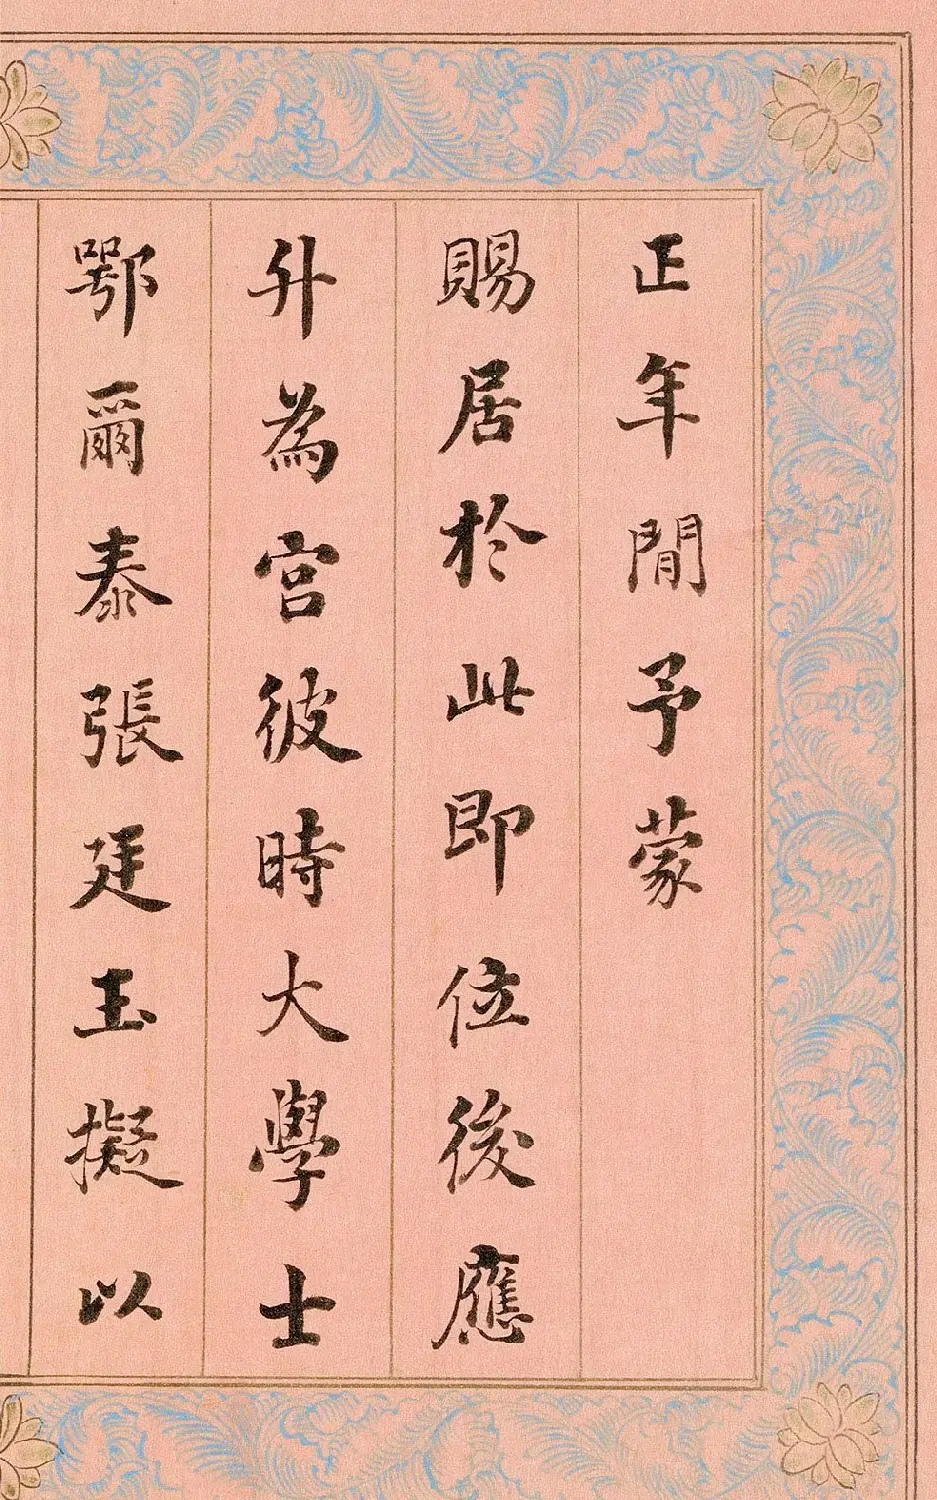 正年間予蒙
賜居於此即位後應
升為宮彼時大學士
鄂爾泰張廷玉擬以